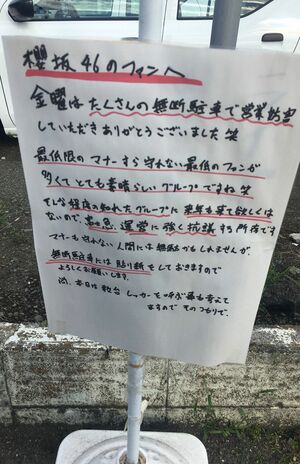 櫻坂46のファンへ
金曜はたくさんの無断駐車で営業妨害
していただきありがとうございました笑
最低限のマナーすら守れない最低のファンが
多くてとても素晴らしいグループですね笑
そんな程度の知れたグループに来年も来て欲しくは
ないので、富急、運営に強く抗議する所存です
マナーも守れない人間には無駄かもしれませんが、
無断駐車には貼り紙をしておきますので
よろしくお願いします。
尚、本日は数台レッカーを呼ぶ事も考えて
ますのでそのつもりで、